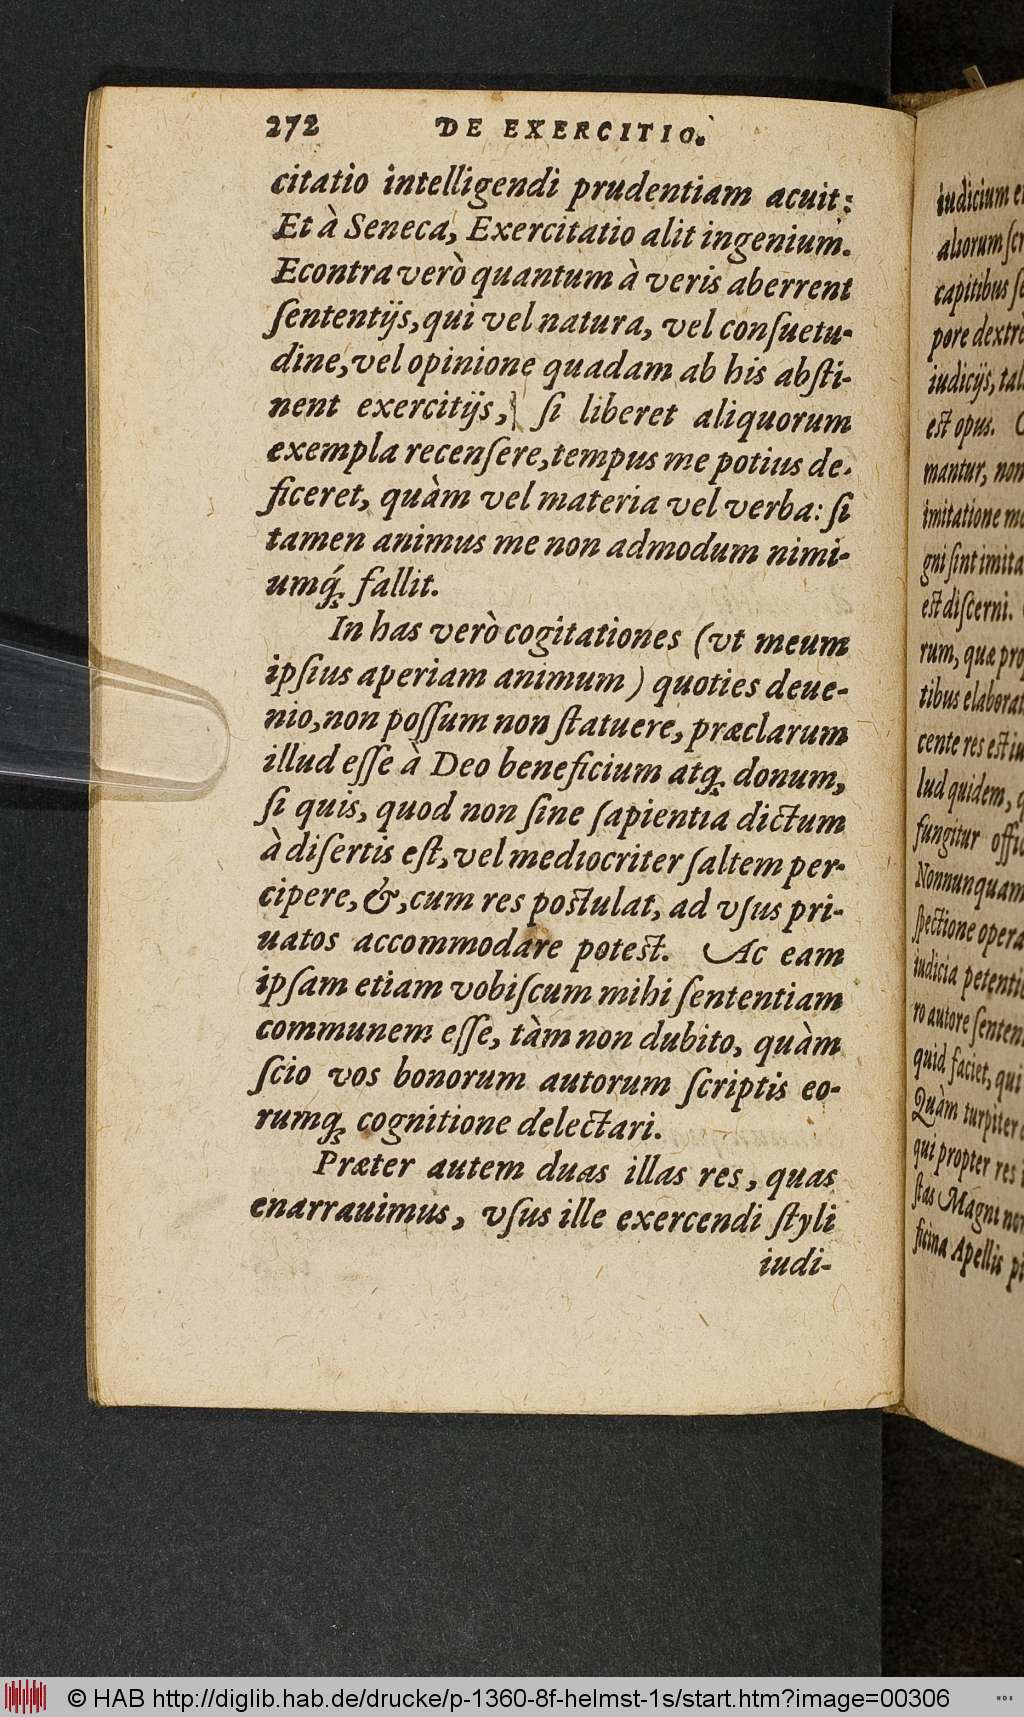 272 DE EXERCITIO.
citatio intelligendi prudentiam acuit:
Et à Seneca, Exercitatio alit ingenium.
Econtra verò quantum à veris aberrent
ſententijs, qui vel natura, vel conſuetu-
dine, vel opinione quadam ab his abſti-
nent exercitijs, ſi liberet aliquorum
exempla recenſere, tempus me potius de-
ficeret, quàm vel materia vel verba: ſi
tamen animus me non admodum nimi-
umq́; fallit.
In has verò cogitationes (vt meum
ipſius aperiam animum) quoties deue-
nio, non poſſum non ſtatuere, præclarum
illud eſſe à Deo beneficium atq; donum,
ſi quis, quod non ſine ſapientia dictum
à diſertis eſt, vel mediocriter ſaltem per-
cipere, &, cum res poſtulat, ad vſus pri-
uatos accommodare poteſt. Ac eam
ipſam etiam vobiſcum mihi ſententiam
communem eſſe, tàm non dubito, quàm
ſcio vos bonorum autorum ſcriptis eo-
rumq; cognitione delectari.
Præter autem duas illas res, quas
enarrauimus, vſus ille exercendi ſtyli
iudi-
iudicium
aliorum
capitibus
pore
iudicijs,
eſt opus.
mantur, non
imitatione
gni ſint
eſt diſcerni.
rum, quæ
tibus
cente res eſt
lud quidem,
fungitur
Nonnunquam
ſpectione
iudicia
ro autore
quid faciet, qui
Quàm turpiter
qui propter res
ſtas Magni
ficina Apellis
© HAB http://diglib.hab.de/drucke/p-1360-8f-helmst-1s/start.htm?image=00306